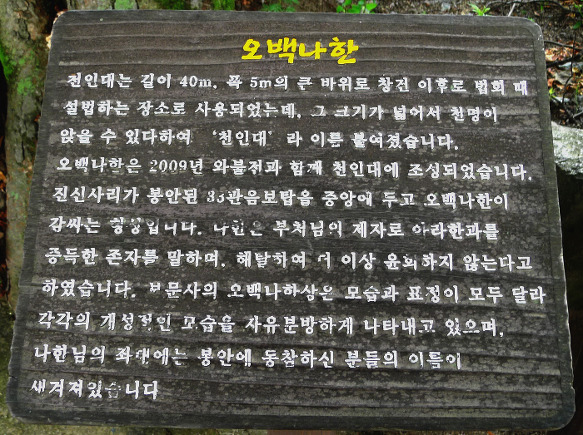 오백나한
천인대는 길이 40m, 폭 5m의 큰 바위로 창건 이후로 법회 때
설법하는 장소로 사용되었는데, 그 크기가 넓어서 천명이
앉을 수 있다하여 '천인대' 라 이름 붙여졌습니다.
오백나한은 2009년 와불전과 함께 천인대에 조성되었습니다.
진신사리가 봉안된 33관음보탑을 중앙에 두고 오백나한이
감싸는 형상입니다. 나한은 부처님의 제자로 아라한과를
증득한 존자를 말하며, 해탈하여 더 이상 윤회하지 않는다고
하였습니다. 보문사의 오백나한상은 모습과 표정이 모두 달라
각각의 개성적인 모습을 자유분방하게 나타내고 있으며,
나한님의 좌대에는 봉안에 동참하신 분들의 이름이
새겨져있습니다